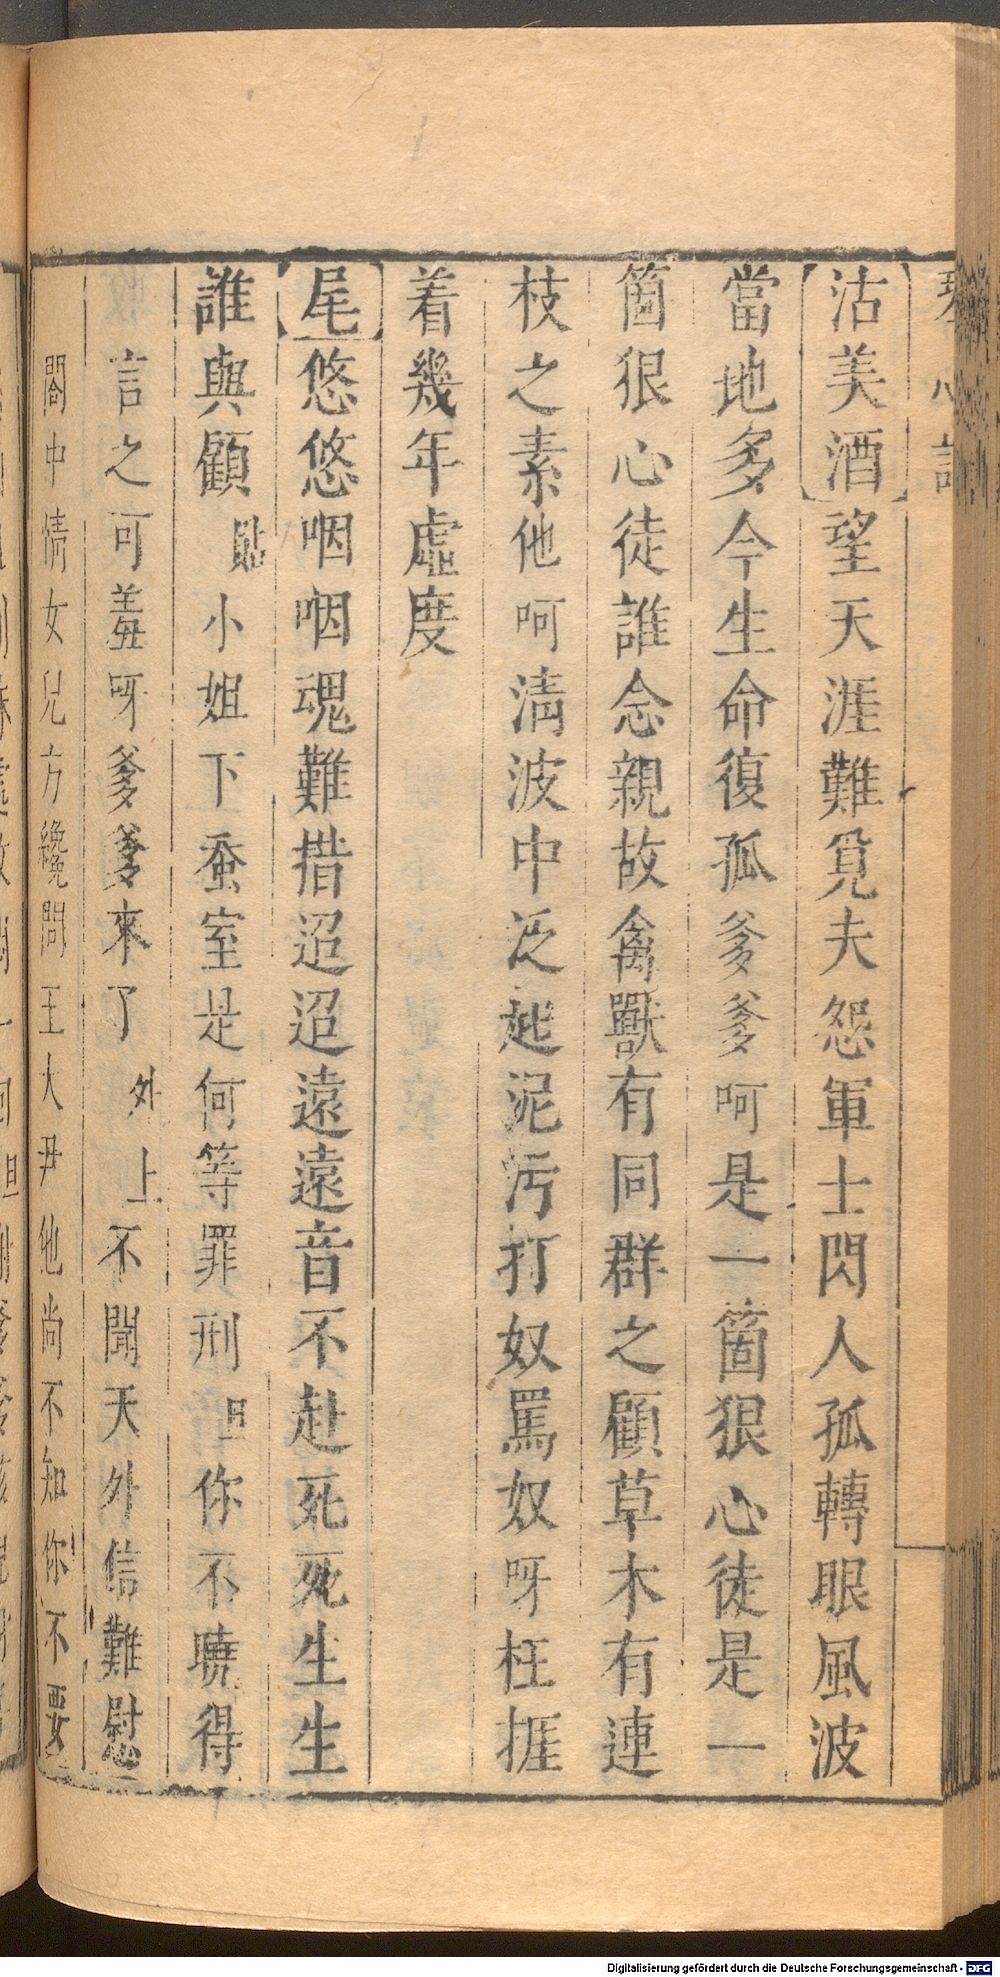 【沽美酒】望天涯難覓夫怨軍士閃人孤轉眼風波
當地多今生命復孤爹爹呵是一箇狠心徒是一
箇狠心徒誰念親故禽獸有同群之顧草木有連
枝之素他呵清波中泛起泥污打奴罵奴呀枉捱
着幾年虛度
【尾】悠悠咽咽魂難措迢迢遠遠音不赴死死生生
誰與顧貼小姐下蚕室是何等罪刑旦你不曉得
言之可羞呀爹爹來了外上不聞天外信難慰
閤中情女兒方纔問王大尹他尚不知你不要
Digitalisierung gefördert durch die Deutsche Forschungsgemeinschaft - DFG